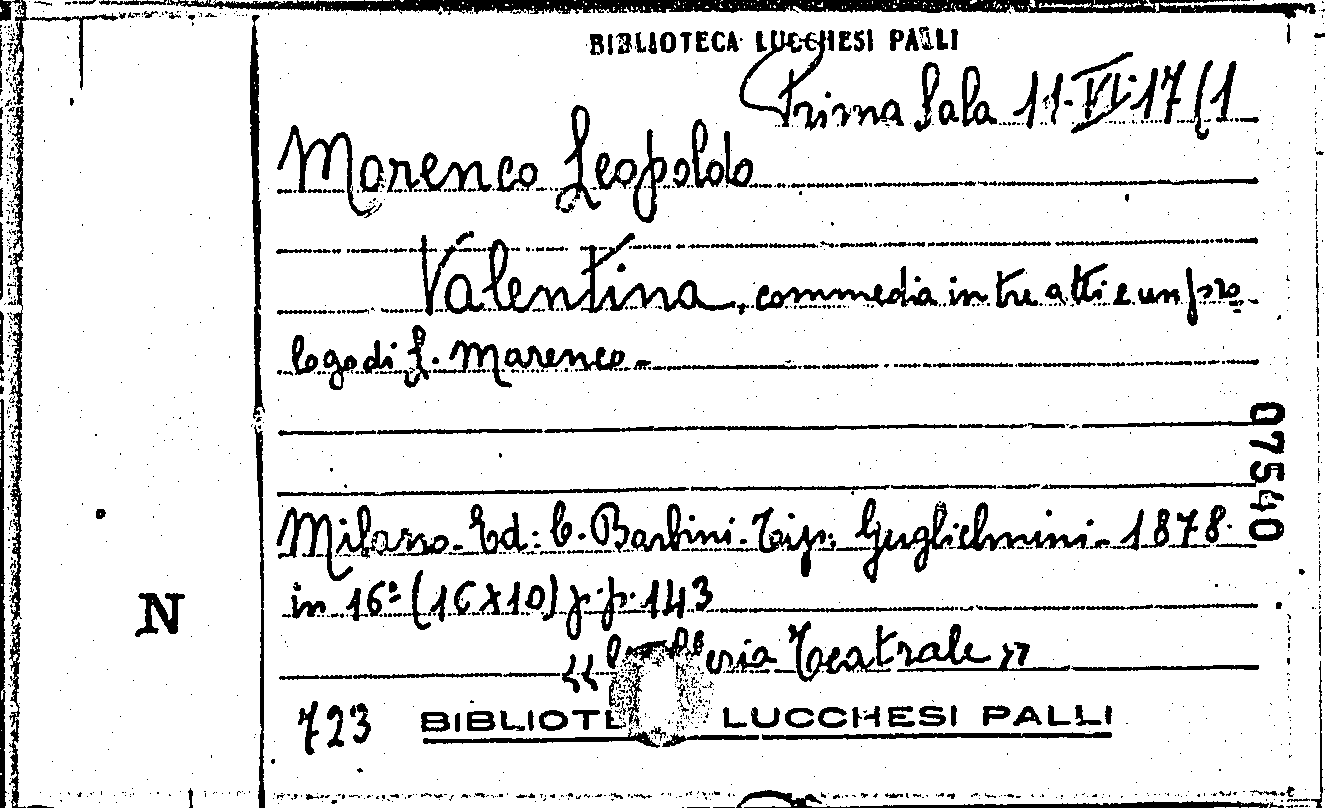 BIBLIOTECA LUCCHESI PALLI
Prima Sala 11.VI.17(1
Marenco Leopoldo
Valentina, commedia in tre atti e un pro
logo di L. Marenco-
07540
Milano- Ed: C. Barbini- Tip: Guglielmini- 1878.
in 16º (16x10) p.p. 143
N
« Teatrale »
723 BIBLIOTE LUCCHESI PALLI